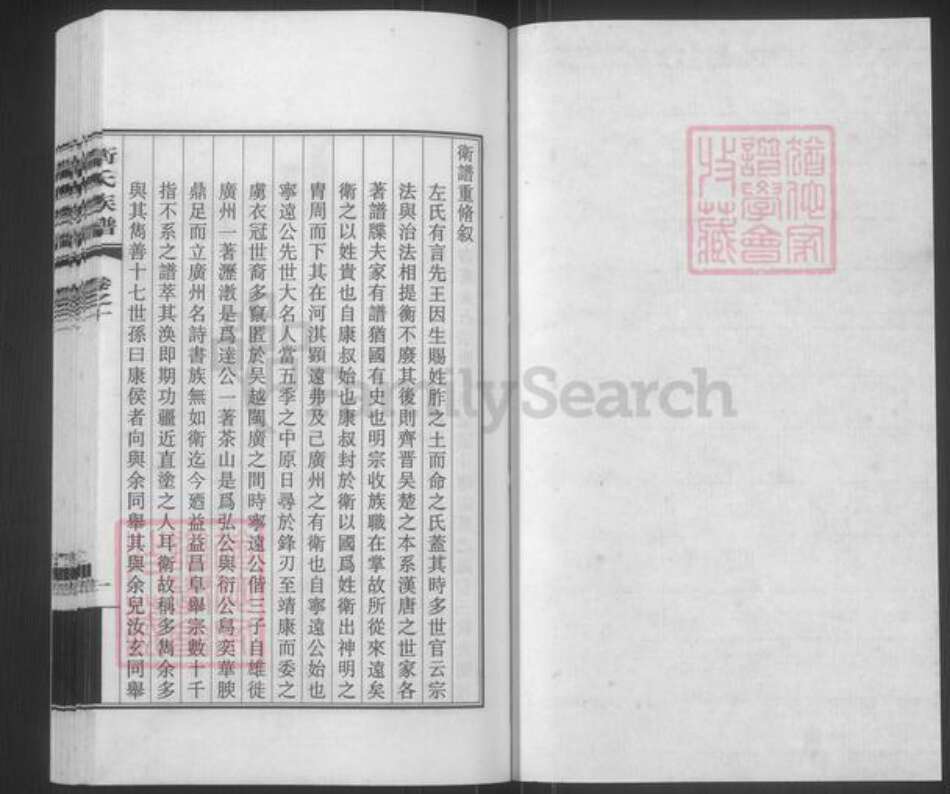 衛譜重脩叙
左氏有言先王因生賜姓胙之土而命之氏蓋其時多世官云宗
法與治法相提衡不廢其後則齊晋吴楚之本系漢唐之世家各
著譜牒夫家有譜猶國有史也明宗收族職在掌故所從來遠矣
衛之以姓貴也自康叔始也康叔封於衛以國爲姓衛出神明之
胄周而下其在河淇顕遠弗及己廣州之有衛也自寧遠公始也
寧遠公先世大名人當五季之中原日尋於鋒刃至靖康而委之
虜衣冠世裔多竄匿於吴越閩廣之間時寧遠公偕三子自雄徙
廣州一著瀝滘是爲達公一著茶山是爲弘公與衍公鳥奕華腴
鼎足而立廣州名詩書族無如衛迄今迺益益昌阜舉宗數十千
指不系之譜萃其渙即期功疆近直塗之人耳衛故稱多雋余多
與其雋善十七世孫曰康侯者向與余同舉其與余兒汝玄同舉
衛氏族譜
卷之十
一
譜學會
收藏
FamilySearch